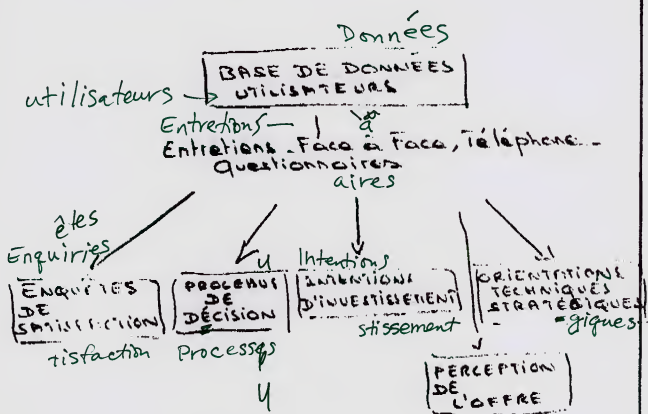 Données
BASE DE DONNÉES
UTILISATEURS
utilisateurs
Entretions
à
Entretiens - Face à Face, Téléphone -
Questionnaires
aires
êtes
Enquiries
ENQUÊTES
DE
SATISFACTION
tisfaction
u
PROCESSUS
DE
DÉCISION
Processqs
u
Intentions
INTENTIONS
D'INVESTISSEMENT
stissement
ORIENTATIONS
TECHNIQUES
STRATÉGIQUES
-giques
PERCEPTION
DE
L'OFFRE